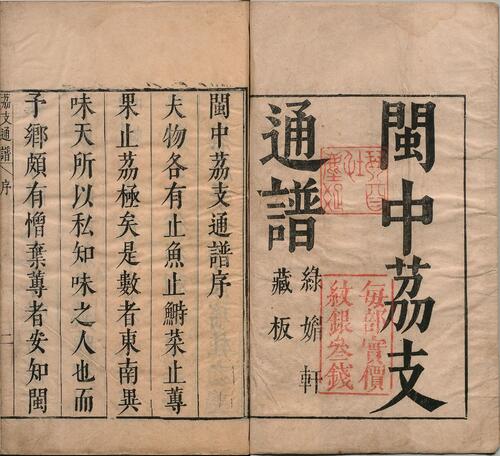 閩中荔支
通譜
綠㠨軒
藏板
每部實價
紋銀叄錢
閩中荔支通譜序
夫物各有止魚止鰣菜止蓴
果止荔極矣是數者東南異
味天所以私知味之人也而
予鄉頗有憎棄蓴者安知閩
荔支通譜
序
二